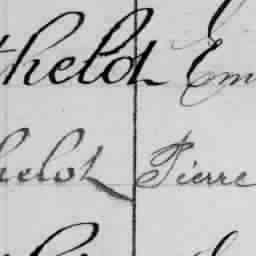 thelot Em
helot Pierre